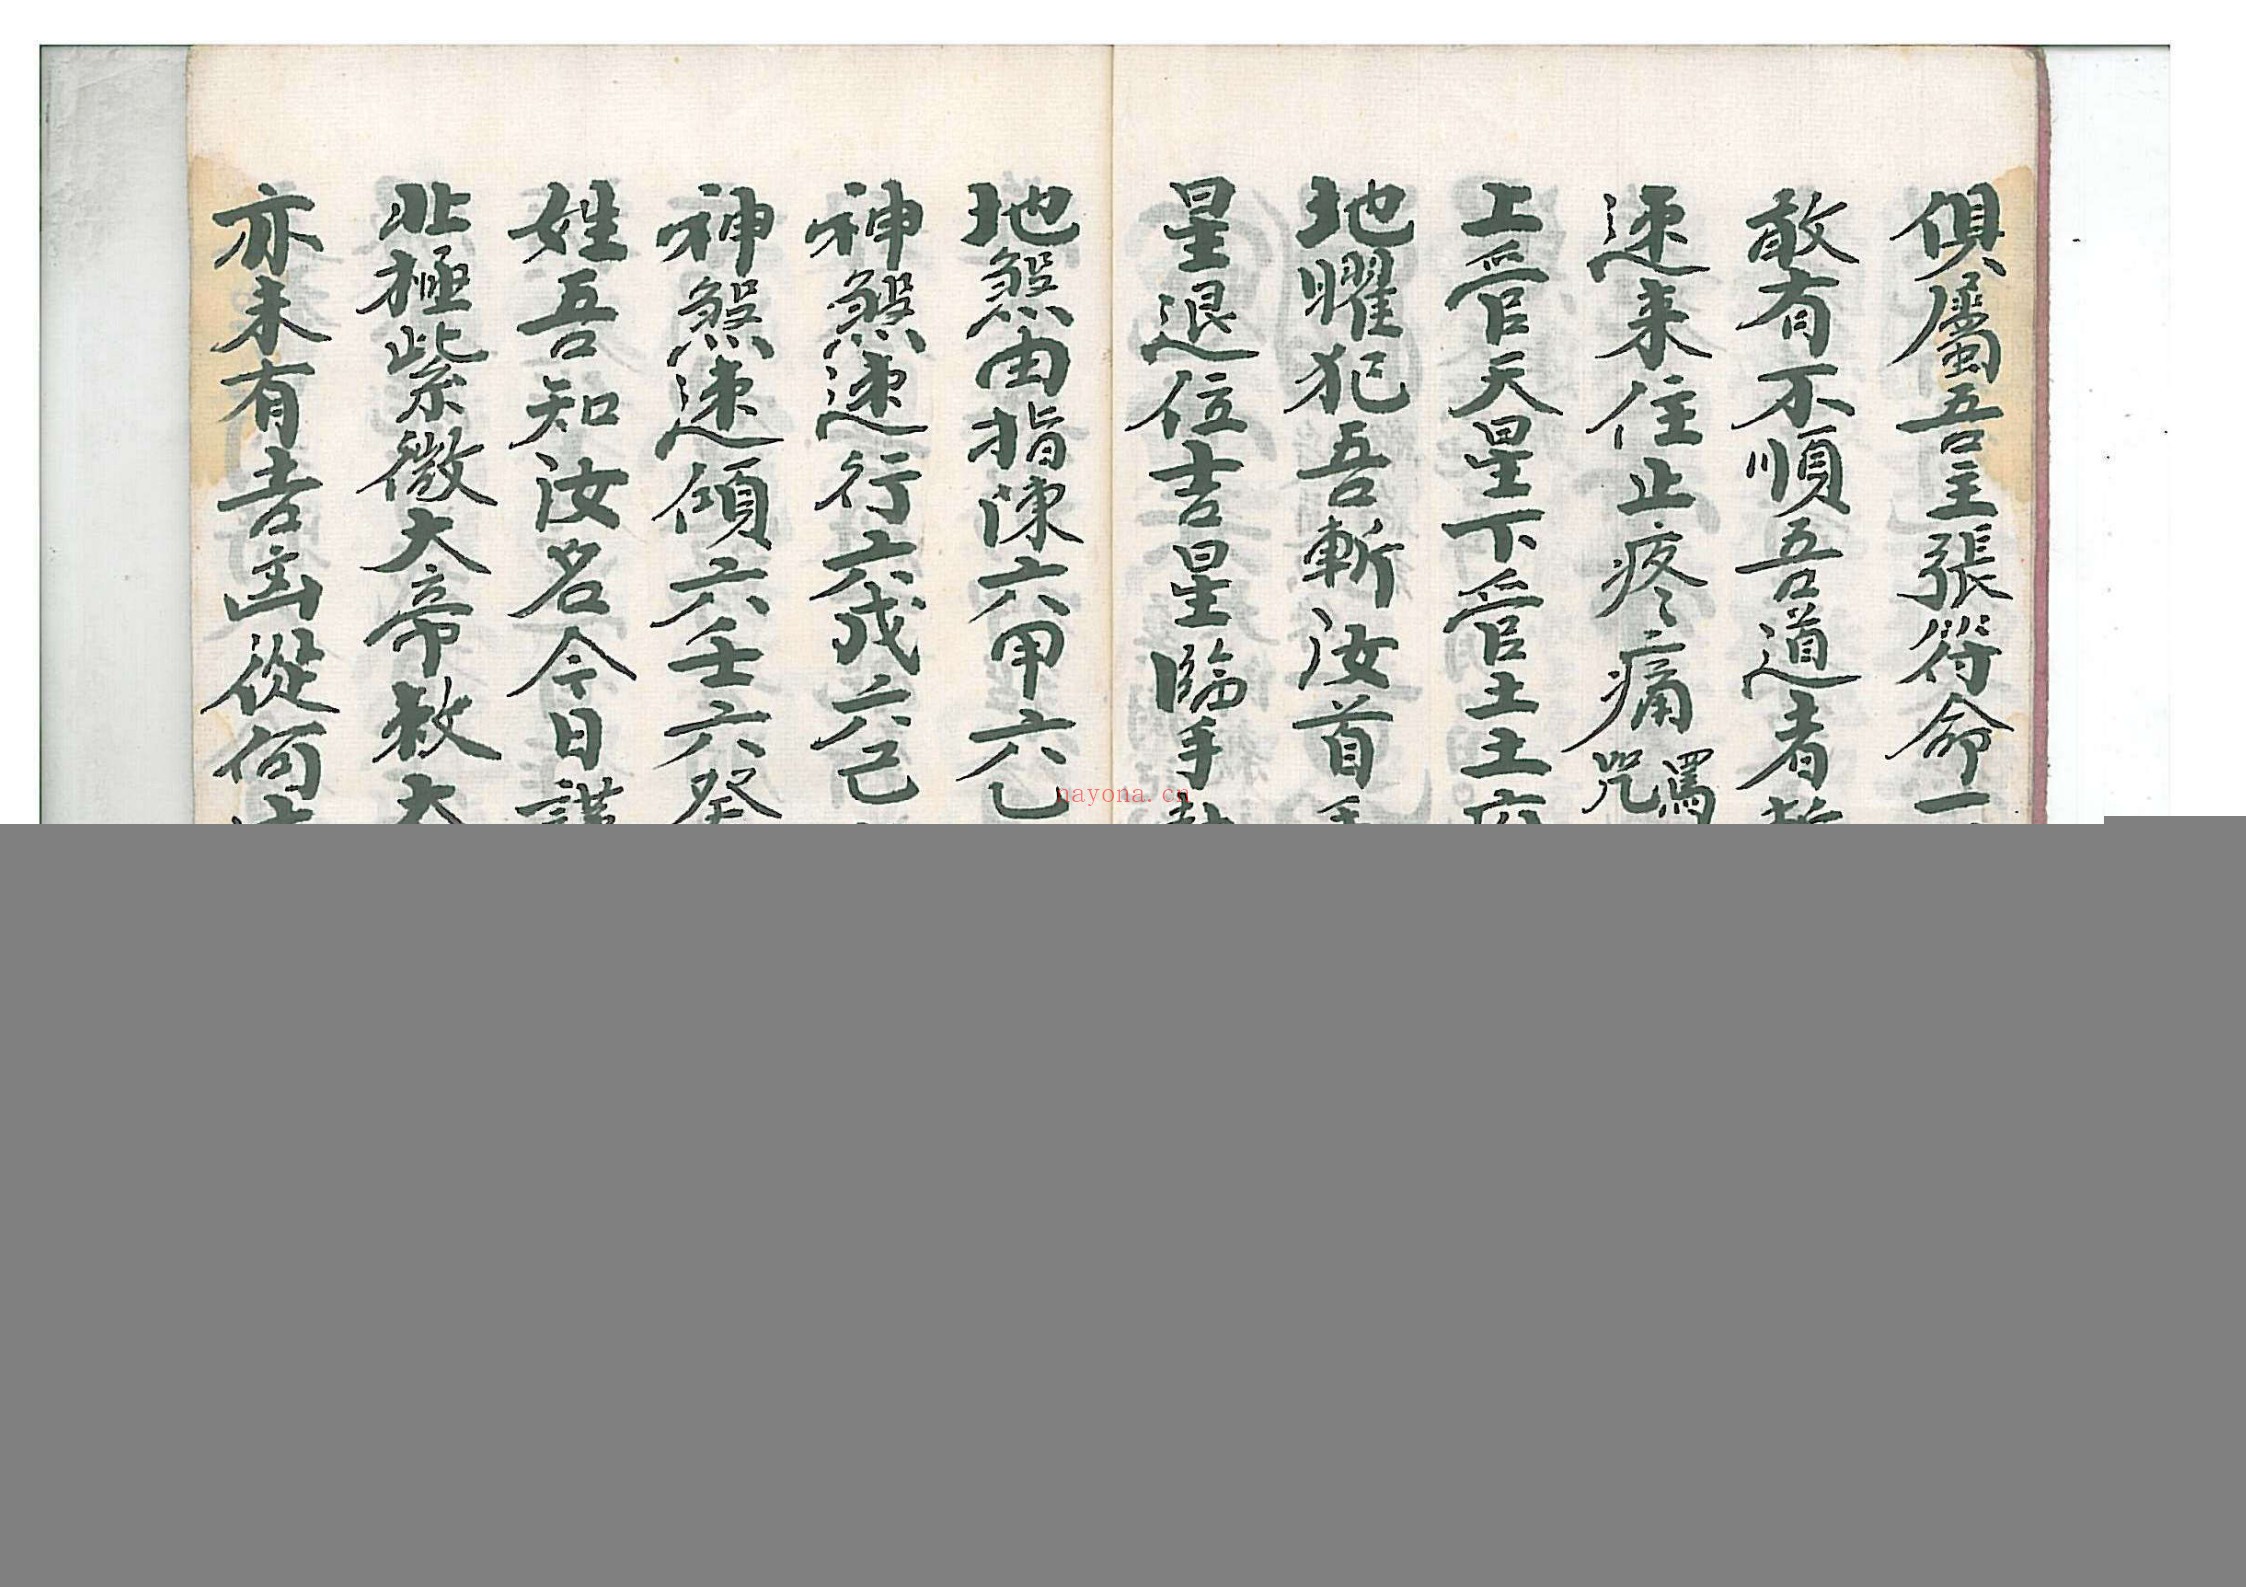 俱屬吾主張符命一
敢有不順吾道者
速来住止疼痛咒罵
上管天星下管土土府
地曜犯吾斬汝首
星退位吉星臨手
地煞由指陳六甲六乙
神煞速行六戊六己
神煞速傾六壬六癸
姓吾知汝名今日謹
北極紫微大帝敕大
亦未有吉凶從何
nayona.cn